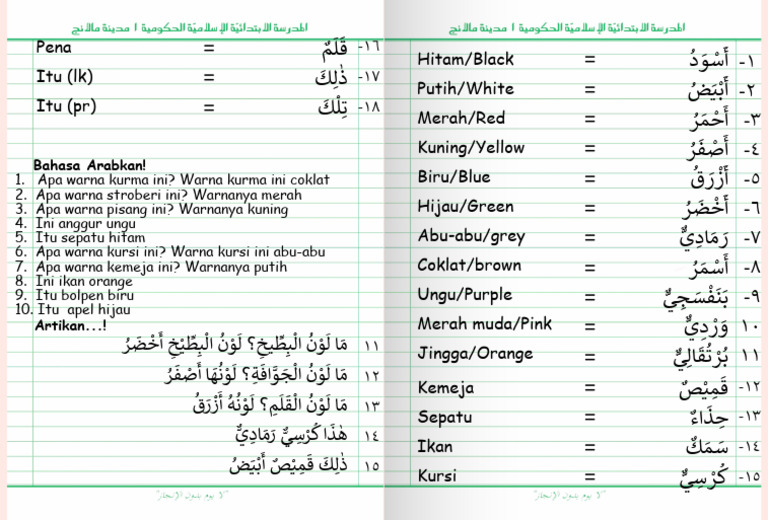 المدرسة الابتدائيّة الإسلاميّة الحكومية ١ مدينة مالانج
Pena = قَلَمٌ -١٦
Itu (lk) = ذٰلِكَ -١٧
Itu (pr) = تِلْكَ -١٨
Bahasa Arabkan!
1. Apa warna kurma ini? Warna kurma ini coklat
2. Apa warna stroberi ini? Warnanya merah
3. Apa warna pisang ini? Warnanya kuning
4. Ini anggur ungu
5. Itu sepatu hitam
6. Apa warna kursi ini? Warna kursi ini abu-abu
7. Apa warna kemeja ini? Warnanya putih
8. Ini ikan orange
9. Itu bolpen biru
10. Itu apel hijau
Artikan...!
١١ مَا لَوْنُ الْبِطِّيخِ؟ لَوْنُ الْبِطِّيْخِ أَخْضَرُ
١٢ مَا لَوْنُ الْجَوَّافَةِ؟ لَوْنُهَا أَصْفَرُ
١٣ مَا لَوْنُ الْقَلَمِ؟ لَوْنُهُ أَزْرَقُ
١٤ هٰذَا كُرْسِيٌّ رَمَادِيٌّ
١٥ ذٰلِكَ قَمِيْصٌ أَبْيَضُ
"لا يوم بدون الإنجاز"
المدرسة الابتدائيّة الإسلاميّة الحكومية ١ مدينة مالانج
Hitam/Black = أَسْوَدُ -١
Putih/White = أَبْيَضُ -٢
Merah/Red = أَحْمَرُ -٣
Kuning/Yellow = أَصْفَرُ -٤
Biru/Blue = أَزْرَقُ -٥
Hijau/Green = أَخْضَرُ -٦
Abu-abu/grey = رَمَادِيٌّ -٧
Coklat/brown = أَسْمَرُ -٨
Ungu/Purple = بَنَفْسَجِيٌّ -٩
Merah muda/Pink = وَرْدِيٌّ ١٠
Jingga/Orange = بُرْتُقَالِيٌّ ١١
Kemeja = قَمِيْصٌ -١٢
Sepatu = حِذَاءٌ -١٣
Ikan = سَمَكٌ -١٤
Kursi = كُرْسِيٌّ -١٥
"لا يوم بدون الإنجاز"